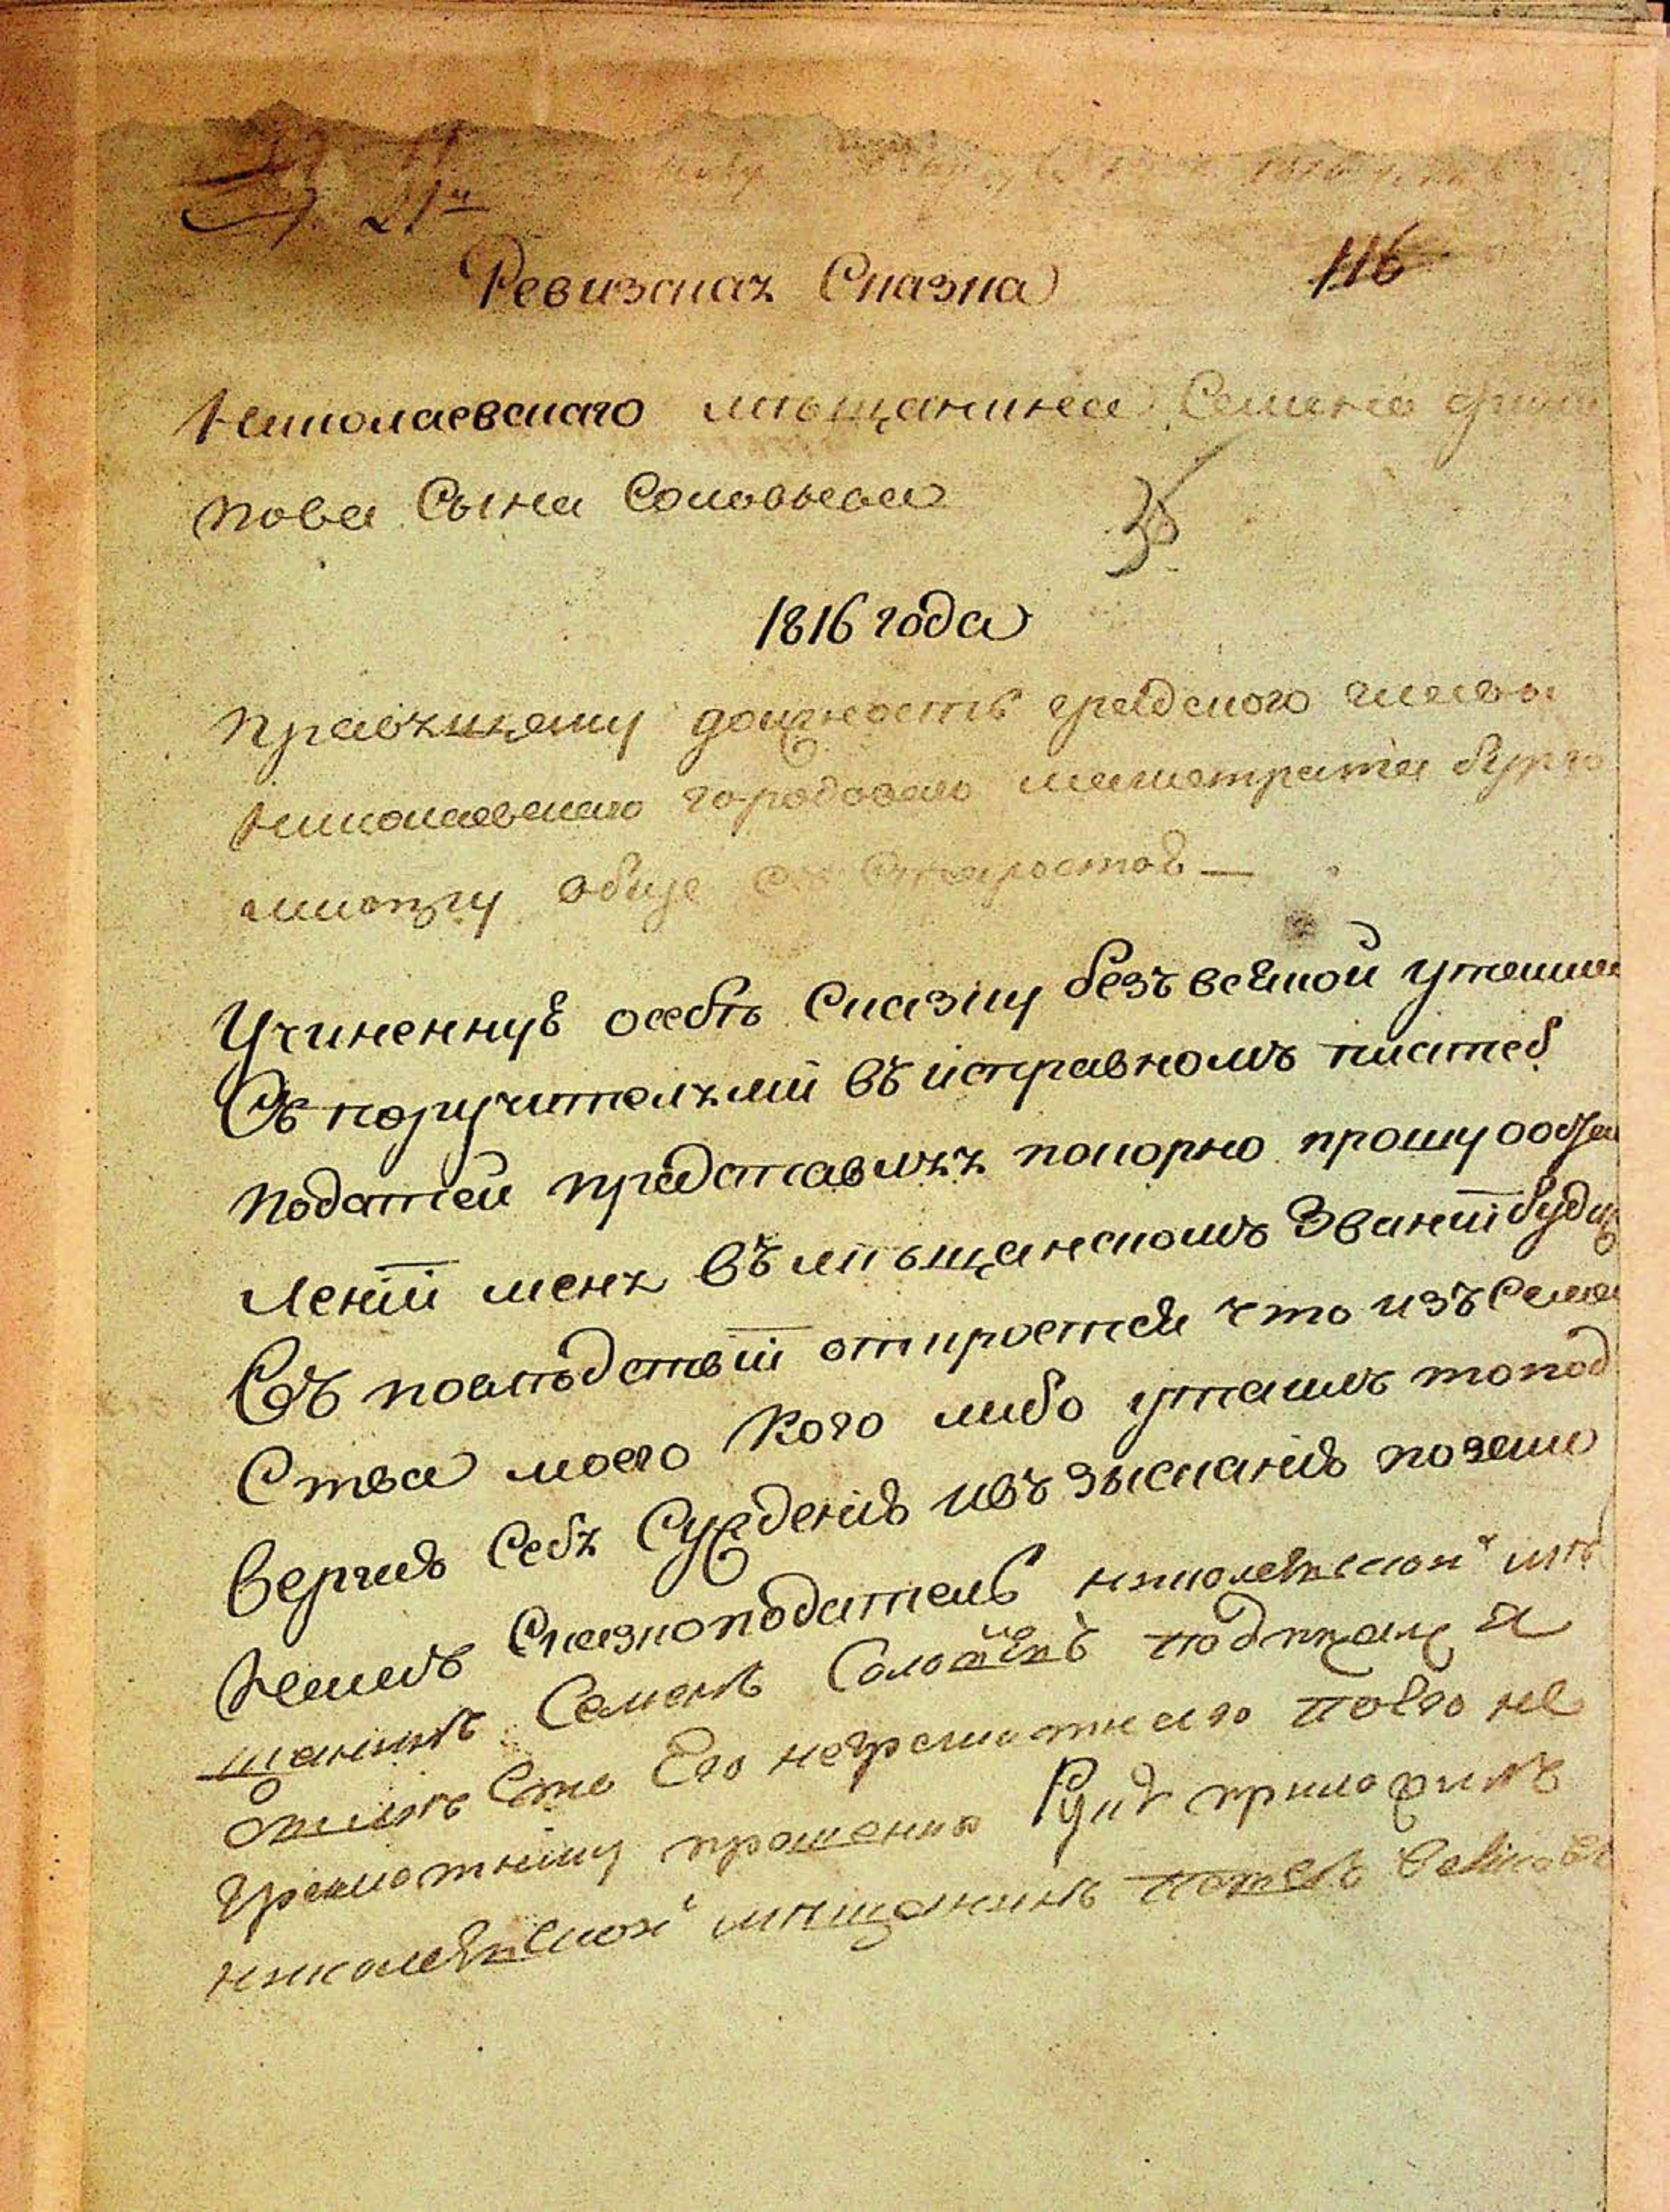 21го
Ревизская Сказка
116
Николаевскаго мѣщанина Семена Фили
пова Сына Соловьева
36
1816 года
Правящему должность градского главы
Николаевского городового магистрата бурго
мистру обще со Старостой —
Учиненную о себѣ Сказку безъ всякой утайки
Съ поручителями въ исправномъ платежѣ
податей представляя покорно прошу о остав
лении меня въ мѣщанскомъ Звании буде
Съ послѣдствии откроется что изъ Семей
Ства моего кого либо утаилъ то под
вергаю Себя Суждению и взысканию по зако
намъ Сказкоподатель николаевской мѣ
щанинъ Семенъ Соловьевъ
Его неграмотнаго по его не
грамотному прошению Руку приложилъ
николаевской мещанинъ